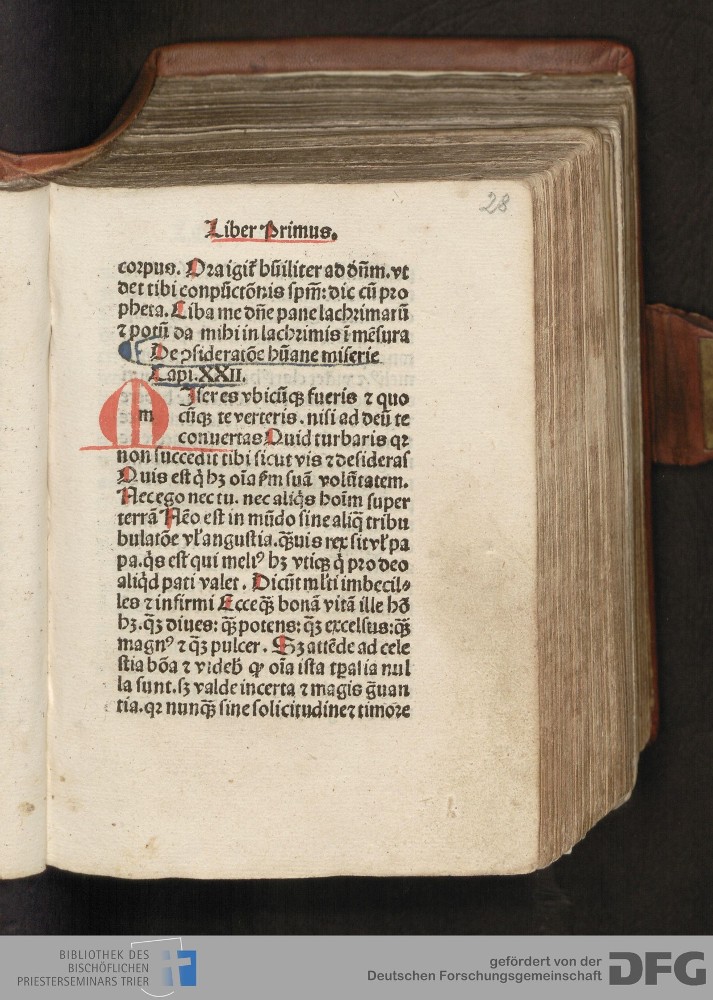 28
Liber Primus.
corpus. Ora igit̄ hūiliter ad dn̄m. vt
det tibi conpūctōnis spm̄: dic cū pro
pheta. Ciba me dn̄e pane lachrimarū
⁊ potū da mihi in lachrimis ī mēsura
De ꝯsideratōe hūane miserie
Capi. XXII.
m Iser es vbicūqꝫ fueris ⁊ quo
cūqꝫ te verteris. nisi ad deū te
conuertas Quid turbaris qꝛ
non succedit tibi sicut vis ⁊ desideras
Quis est q̇ hꝫ oīa scd̄m suā volūtatem.
Nec ego nec tu. nec aliq̇s hoīm super
terrā Nēo est in mūdo sine aliq̄ tribu
bulatōe vl̓ angustia. q̄ꝫuis rex sit vl̓ pa
pa. q̇s est qui meliꝰ hꝫ vtiqꝫ q̇ pro deo
aliq̇d pati valet. Dicūt ml̓ti imbecil-
les ⁊ infirmi Ecce q̄ꝫ bonā vitā ille hō
hꝫ. q̄ꝫ diues: q̄ꝫ potens: q̄ꝫ excelsus: q̄ꝫ
magnꝰ ⁊ q̄ꝫ pulcer. Sꝫ attēde ad cele
stia bōa ⁊ videb̄ ꝙ oīa ista tꝑalia nul
la sunt. sꝫ valde incerta ⁊ magis ḡuan
tia. qꝛ nunq̄ꝫ sine solicitudine ⁊ timore
BIBLIOTHEK DES
BISCHÖFLICHEN
PRIESTERSEMINARS TRIER
gefördert von der
Deutschen Forschungsgemeinschaft
DFG